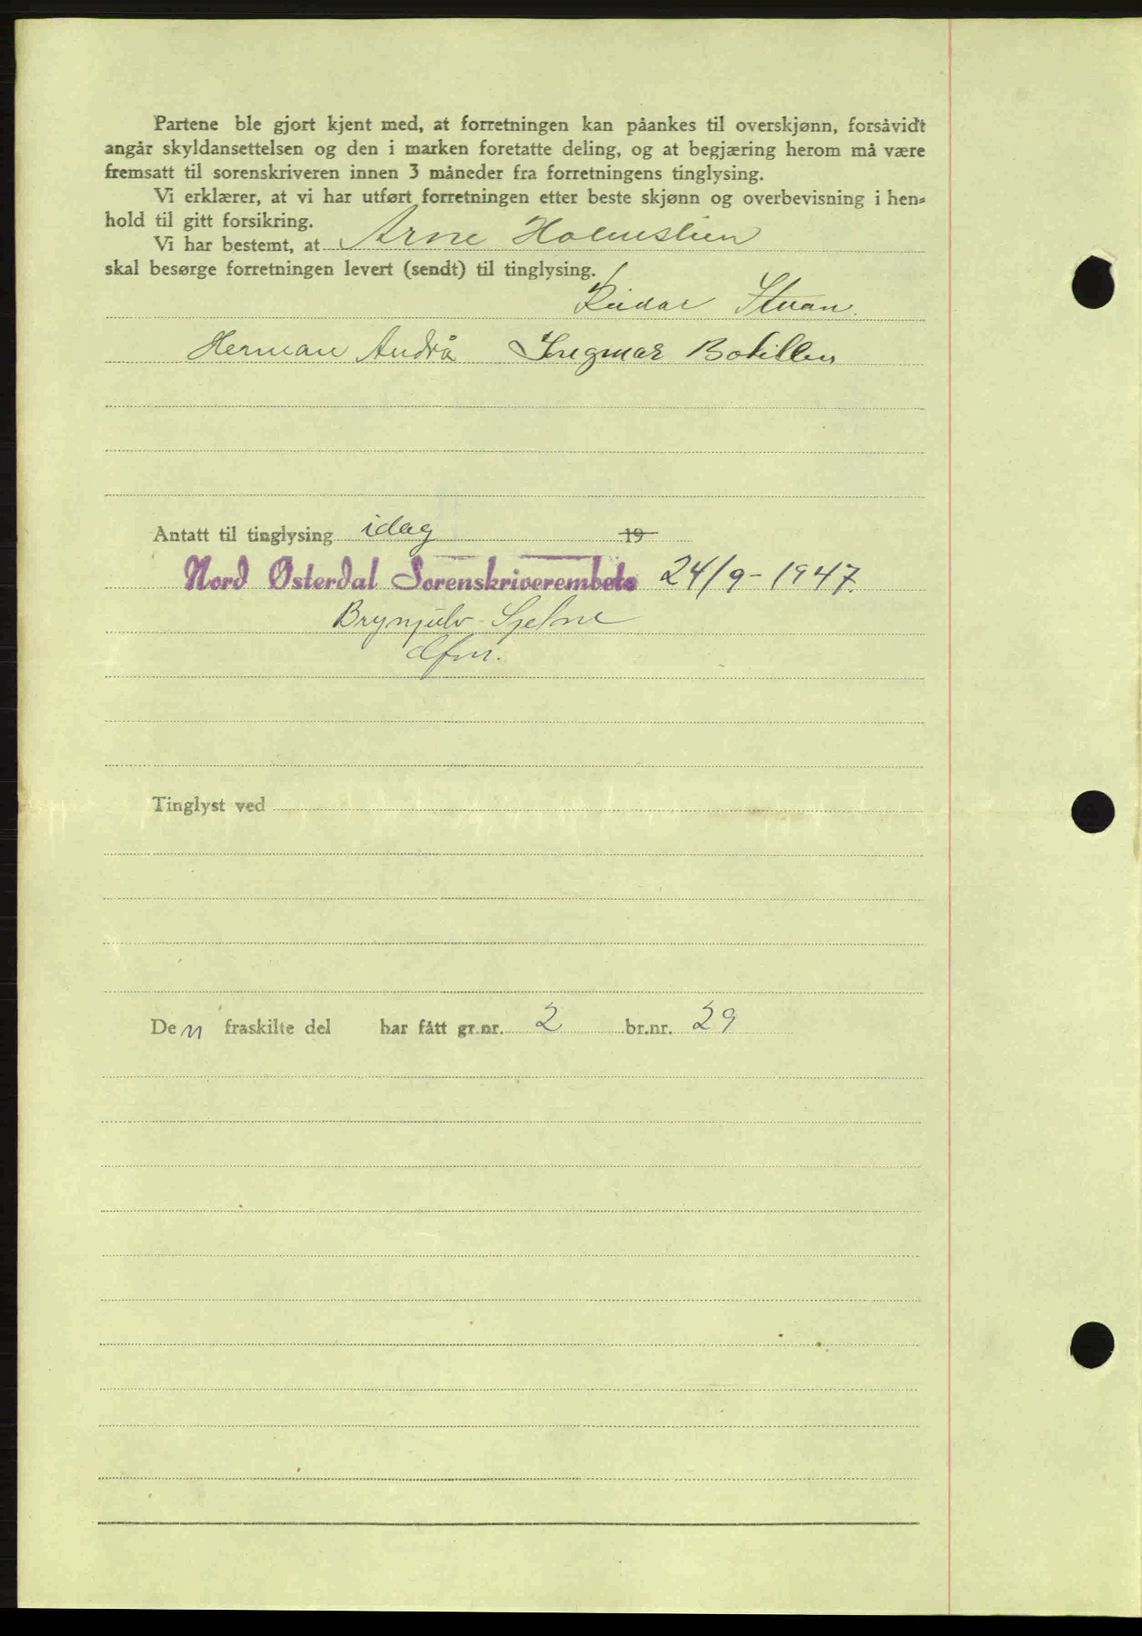 Partene ble gjort kjent med, at forretningen kan påankes til overskjønn, forsåvidt
angår skyldansettelsen og den i marken foretatte deling, og at begjæring herom må være
fremsatt til sorenskriveren innen 3 måneder fra forretningens tinglysing.
Vi erklærer, at vi har utført forretningen etter beste skjønn og overbevisning i hen-
hold til gitt forsikring.
Vi har bestemt, at Arne Holmslien
skal besørge forretningen levert (sendt) til tinglysing.
Reidar Stuan.
Herman Andrå Ingmar Botillen
Antatt til tinglysing idag 19
Nord Østerdal Sorenskriverembete 24/9-1947.
Brynjulv
Den fraskilte del har fått gr.nr. 2 br.nr. 29
Tinglyst ved